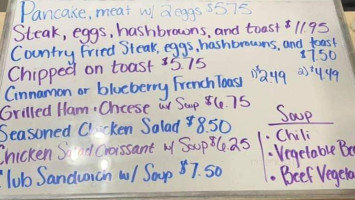 Pancake, meat w/ 2 eggs $5.75
Steak, eggs, hashbrowns, and toast $11.95
Country Fried Steak, eggs, hashbrowns, and toast
$7.50
Chipped on toast $5.75
Cinnamon or blueberry French Toast 1) $2.49 2) $4.49
Grilled Ham & Cheese w/ Soup $6.75
Seasoned Chicken Salad $8.50
Chicken Salad Croissant w/ Soup $6.25
Club Sandwich w/ Soup $7.50
Soup
• Chili
• Vegetable Bee
• Beef Vegeta